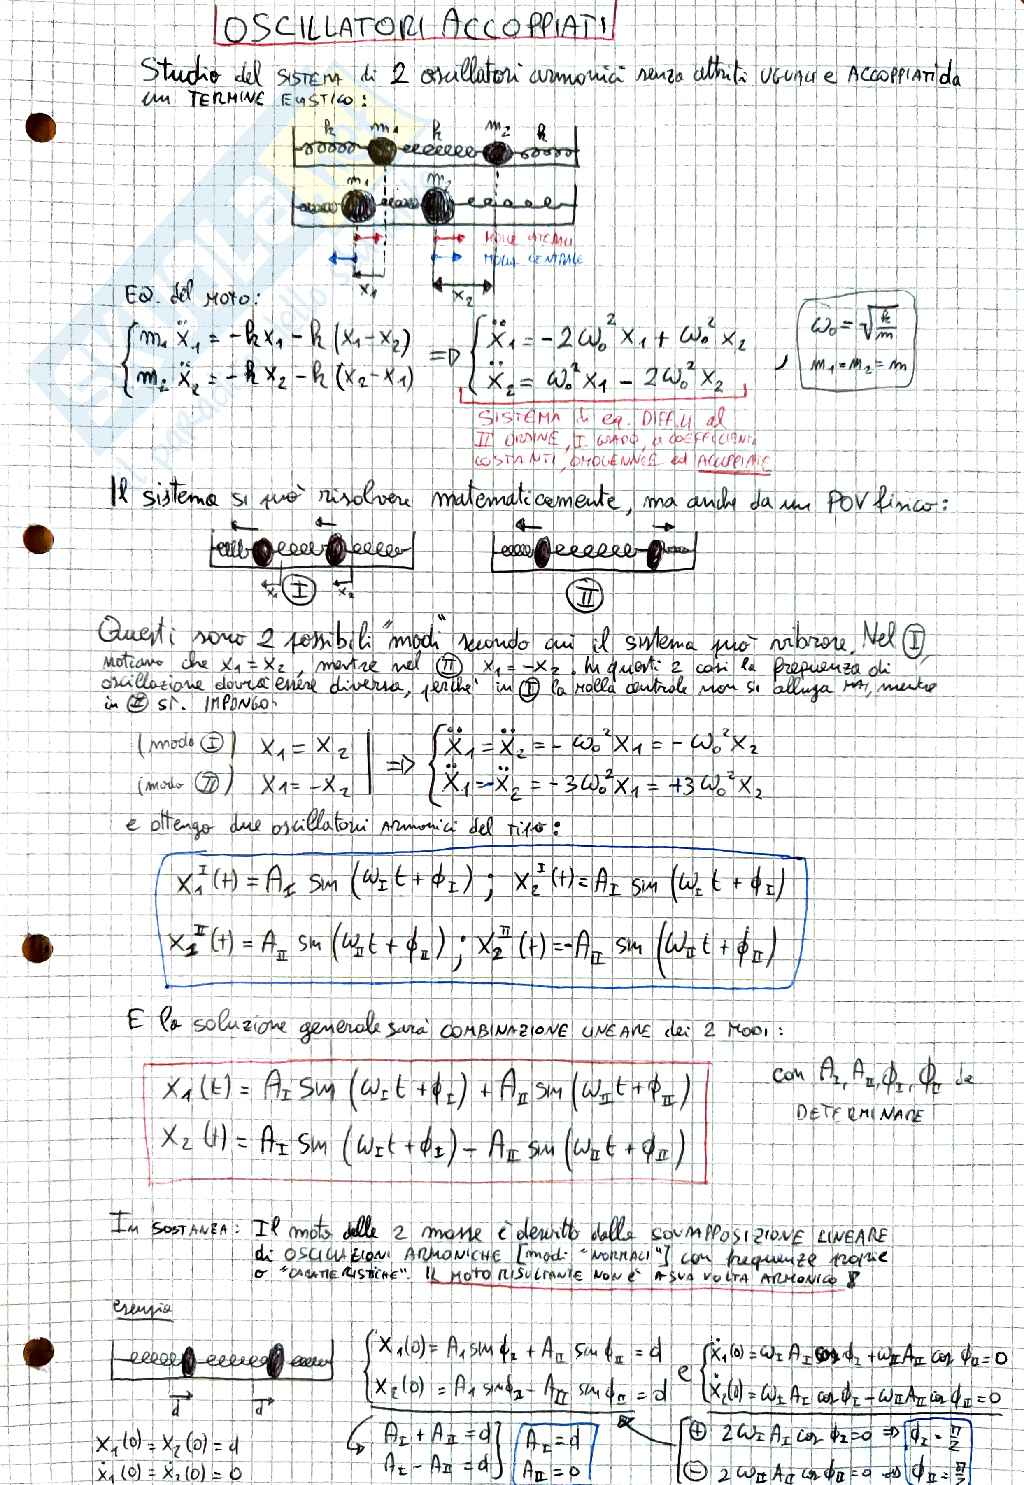 OSCILLATORI ACCOPPIATI
Studio del SISTEMA di 2 oscillatori armonici senza attriti UGUALI e ACCOPPIATI da
un TERMINE ELASTICO:
k m₁ k m₂ k
m₁ m₂
MOLLE LATERALI
MOLLA CENTRALE
x₁ x₂
EQ. del MOTO:
m₁ ẍ₁ = -k x₁ - k (x₁-x₂) => ẍ₁ = -2ω₀² x₁ + ω₀² x₂ , ω₀ = √(k/m)
m₂ ẍ₂ = -k x₂ - k (x₂-x₁) ẍ₂ = ω₀² x₁ - 2ω₀² x₂ m₁ = m₂ = m
SISTEMA di eq. DIFF.LI al
II ORDINE, I GRADO, a COEFFICIENTI
COSTANTI, OMOGENEE ed ACCOPPIATE
Il sistema si può risolvere matematicamente, ma anche da un POV fisico:
x₁ I x₂ II
Questi sono 2 possibili "modi" secondo cui il sistema può vibrare. Nel I,
notiamo che x₁ = x₂, mentre nel II x₁ = -x₂. In questi 2 casi la frequenza di
oscillazione dovrà essere diversa, perché in I la molla centrale non si allunga MAI, mentre
in II sì. IMPONGO:
(modo I) x₁ = x₂ => ẍ₁ = ẍ₂ = -ω₀² x₁ = -ω₀² x₂
(modo II) x₁ = -x₂ ẍ₁ = -ẍ₂ = -3ω₀² x₁ = +3ω₀² x₂
e ottengo due oscillatori ARMONICI del TIPO:
x₁ᴵ(t) = A_I sin (ω_I t + ϕ_I) ; x₂ᴵ(t) = A_I sin (ω_I t + ϕ_I)
x₁ᴵᴵ(t) = A_II sin (ω_II t + ϕ_II) ; x₂ᴵᴵ(t) = -A_II sin (ω_II t + ϕ_II)
E la soluzione generale sarà COMBINAZIONE LINEARE dei 2 MODI:
x₁(t) = A_I sin (ω_I t + ϕ_I) + A_II sin (ω_II t + ϕ_II) con A_I, A_II, ϕ_I, ϕ_II da
x₂(t) = A_I sin (ω_I t + ϕ_I) - A_II sin (ω_II t + ϕ_II) DETERMINARE
IN SOSTANZA: Il moto delle 2 masse è descritto dalla SOVRAPPOSIZIONE LINEARE
di OSCILLAZIONI ARMONICHE [modi "NORMALI"] con frequenze proprie
o "CARATTERISTICHE". IL MOTO RISULTANTE NON È A SUA VOLTA ARMONICO!
esempio
x₁(0) = A₁ sin ϕ_I + A_II sin ϕ_II = d e ẋ₁(0) = ω_I A_I cos ϕ_I + ω_II A_II cos ϕ_II = 0
x₂(0) = A₁ sin ϕ_I - A_II sin ϕ_II = d ẋ₂(0) = ω_I A_I cos ϕ_I - ω_II A_II cos ϕ_II = 0
d d
x₁(0) = x₂(0) = d A_I + A_II = d A_I = d ⊕ 2ω_I A_I cos ϕ_I = 0 => ϕ_I = π/2
ẋ₁(0) = ẋ₂(0) = 0 A_I - A_II = d A_II = 0 ⊖ 2ω_II A_II cos ϕ_II = 0 => ϕ_II = π/2